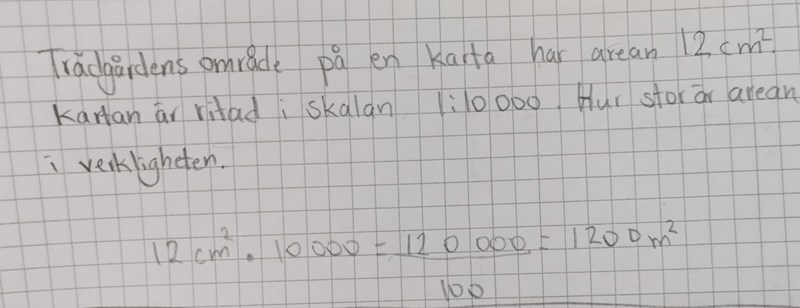 Trädgårdens område på en karta har arean 12 cm².
Kartan är ritad i skalan 1:10 000. Hur stor är arean
i verkligheten.
12 cm² · 10 000 = 120 000 / 100 = 1200 m²